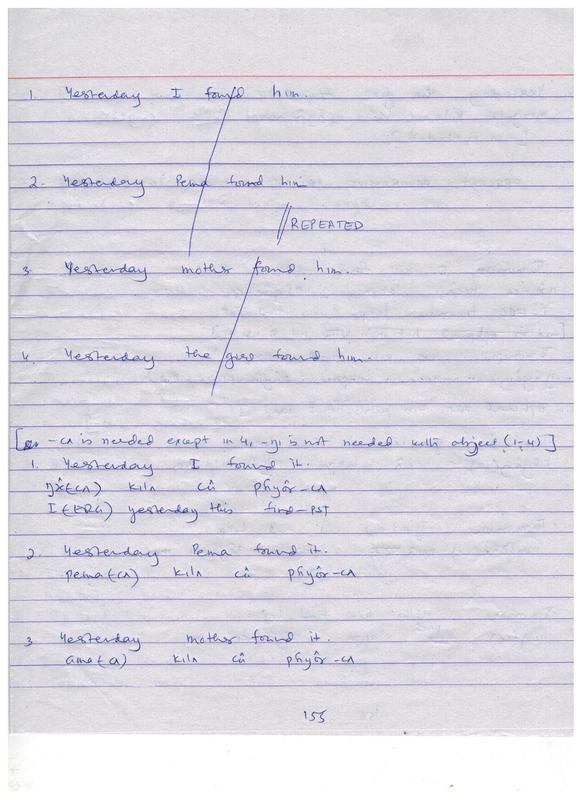 1. Yesterday I found him.
2. Yesterday Pema found him
REPEATED
3. Yesterday mother found him.
4. Yesterday the girl found him.
[ -cʌ is needed except in 4, -ŋi is not needed with object (1-4) ]
1. Yesterday I found it.
kilʌ cû phyôr-cʌ
I (ERG) yesterday this find-PST
2. Yesterday Pema found it.
pema(cʌ) kilʌ cû phyôr-cʌ
3 Yesterday mother found it.
kilʌ cû phyôr-cʌ
155